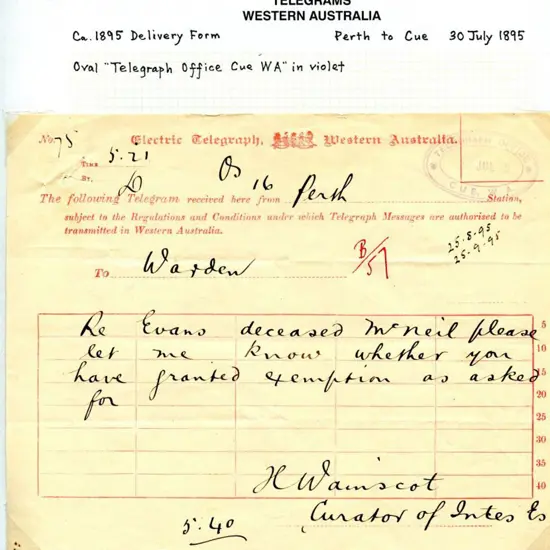 TELEGRAMS
WESTERN AUSTRALIA
Ca. 1895 Delivery Form Perth to Cue 30 July 1895
Oval "Telegraph Office Cue WA" in violet
No. 75 Electric Telegraph, Western Australia.
TIME 5.21
BY.
Os 16
The following Telegram received here from Perth Station,
subject to the Regulations and Conditions under which Telegraph Messages are authorised to be
transmitted in Western Australia.
CUE W.A.
25.8.95
25.9.95
To Warden B/57
Re Evans deceased McNeil please 5
let me know whether you 10
have granted exemption as asked 15
for 20
25
30
35
H Wainscot 40
5.40 Curator of Intes Es